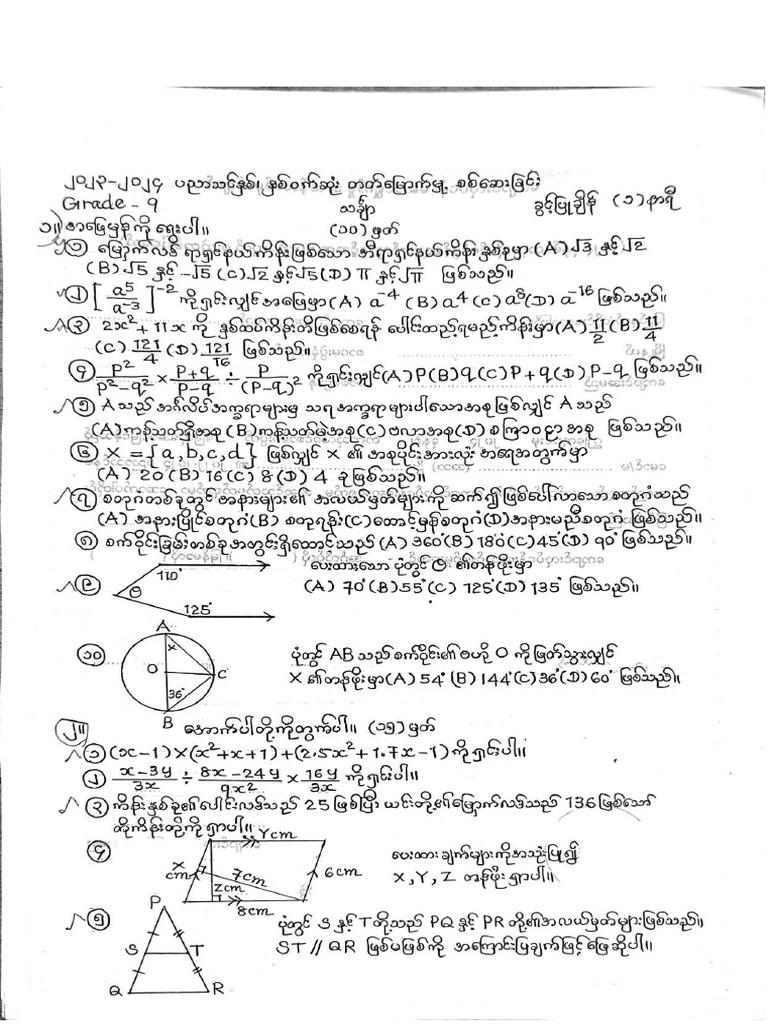 ၂၀၂၃-၂၀၂၄ ပညာသင်နှစ်၊ နှစ်ဝက်ဆုံး တတ်မြောက်မှု စစ်ဆေးခြင်း
Grade - 9 သင်္ချာ ခွင့်ပြုချိန် (၁)နာရီ
၁။ အဖြေမှန်ကို ရွေးပါ။ (၁၀)မှတ်
၁ မြှောက်လဒ် ရာရှင်နယ်ကိန်းဖြစ်သော အီရာရှင်နယ်ကိန်း နှစ်ခုမှာ (A) √3 နှင့် √2
(B) √5 နှင့် -√5 (C) √2 နှင့် √5 (D) π နှင့် √π ဖြစ်သည်။
၂ [a⁵/a⁻³]⁻² ကိုရှင်းလျှင် အဖြေမှာ (A) a⁻⁴ (B) a⁴ (C) a⁸ (D) a⁻¹⁶ ဖြစ်သည်။
၃ 2x²+11x ကို နှစ်ထပ်ကိန်းတိဖြစ်စေရန် ပေါင်းထည့်ရမည့်ကိန်းမှာ (A) 11/2 (B) 11/4
(C) 121/4 (D) 121/16 ဖြစ်သည်။
၄ p²/p²-q² × p+q/p-q ÷ p/(p-q)² ကိုရှင်းလျှင် (A) P (B) q (C) P+q (D) P-q ဖြစ်သည်။
၅ A သည် အင်္ဂလိပ်အက္ခရာများမှ သရအက္ခရာများပါသောအစုဖြစ်လျှင် A သည်
(A) ကန့်သတ်ရှိအစု (B) ကန့်သတ်မဲ့အစု (C) ဗလာအစု (D) စကြာဝဠာအစု ဖြစ်သည်။
၆ X = {a,b,c,d} ဖြစ်လျှင် X ၏ အစုပိုင်းအားလုံး အရေအတွက်မှာ
(A) 20 (B) 16 (C) 8 (D) 4 ခုဖြစ်သည်။
၇ စတုဂံတစ်ခုတွင် အနားများ၏ အလယ်မှတ်များကို ဆက်၍ဖြစ်ပေါ်လာသော စတုဂံသည်
(A) အနားပြိုင်စတုဂံ (B) စတုရန်း (C) ထောင့်မှန်စတုဂံ (D) အနားမညီစတုဂံ ဖြစ်သည်။
၈ စက်ဝိုင်းခြမ်းတစ်ခုအတွင်းရှိထောင့်သည် (A) 360° (B) 180° (C) 45° (D) 90° ဖြစ်သည်။
၉ 110° θ 125° ပေးထားသော ပုံတွင် θ ၏တန်ဖိုးမှာ
(A) 70° (B) 55° (C) 125° (D) 135° ဖြစ်သည်။
A
x
၁၀ O C ပုံတွင် AB သည် စက်ဝိုင်း၏ဗဟို O ကိုဖြတ်သွားလျှင်
36° X ၏တန်ဖိုးမှာ (A) 54° (B) 144° (C) 36° (D) 60° ဖြစ်သည်။
B
၂။ အောက်ပါတို့ကိုတွက်ပါ။ (၁၅)မှတ်
၁ (x-1)×(x²+x+1)+(2.5x²+1.7x-1) ကိုရှင်းပါ။
၂ x-3y/3x ÷ 8x-24y/9x² × 16y/3x ကိုရှင်းပါ။
၃ ကိန်းနှစ်ခု၏ပေါင်းလဒ်သည် 25 ဖြစ်ပြီး ယင်းတို့၏မြှောက်လဒ်သည် 136 ဖြစ်သော်
ထိုကိန်းတို့ကိုရှာပါ။
၄ Ycm ပေးထားချက်များကိုအသုံးပြု၍
x cm 7cm zcm 6cm X,Y,Z တန်ဖိုးရှာပါ။
8cm
P
၅ ပုံတွင် S နှင့် T တို့သည် PQ နှင့် PR တို့၏အလယ်မှတ်များဖြစ်သည်။
S T ST // QR ဖြစ်မဖြစ်ကို အကြောင်းပြချက်ဖြင့်ဖြေဆိုပါ။
Q R